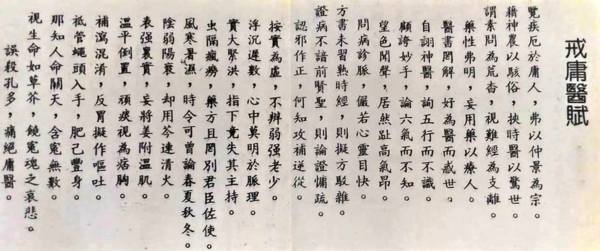 戒庸醫賦
覽疾厄於庸人，弗以仲景為宗。
藉神農以駭俗，挾時醫以驚世。
謂素問為荒杳，視難經為支離。
藥性弗明，妄用藥以療人。
醫書罔解，好為醫而惑世。
自詡神醫，詢五行而不識。
顧誇妙手，論六氣而不知。
望色聞聲，居然趾高氣昂。
問病診脈，儼若心靈目快。
方書未習熟時經，則擬方駁雜。
證病不諳前賢聖，則論證慵疏。
認邪作正，何知攻補逆從。
按實為虛，不辨強弱老少。
浮沉遲數，心中莫明於脈理。
實大緊洪，指下竟失其主持。
虫隔瘋癆，藥方且罔別君臣佐使。
風寒暑濕，時令可曾論春夏秋冬。
陰弱陽衰，却用芩連清火。
表强裏實，妄將姜附溫肌。
溫平倒置，頑痰視為痞胸。
補瀉混淆，反胃擬作嘔吐。
祗管蠅頭入手，肥己豐身。
那知人命關天，含寃無數。
視生命如草芥，饒寃魂之哀悲。
誤殺孔多，痛絕庸醫。